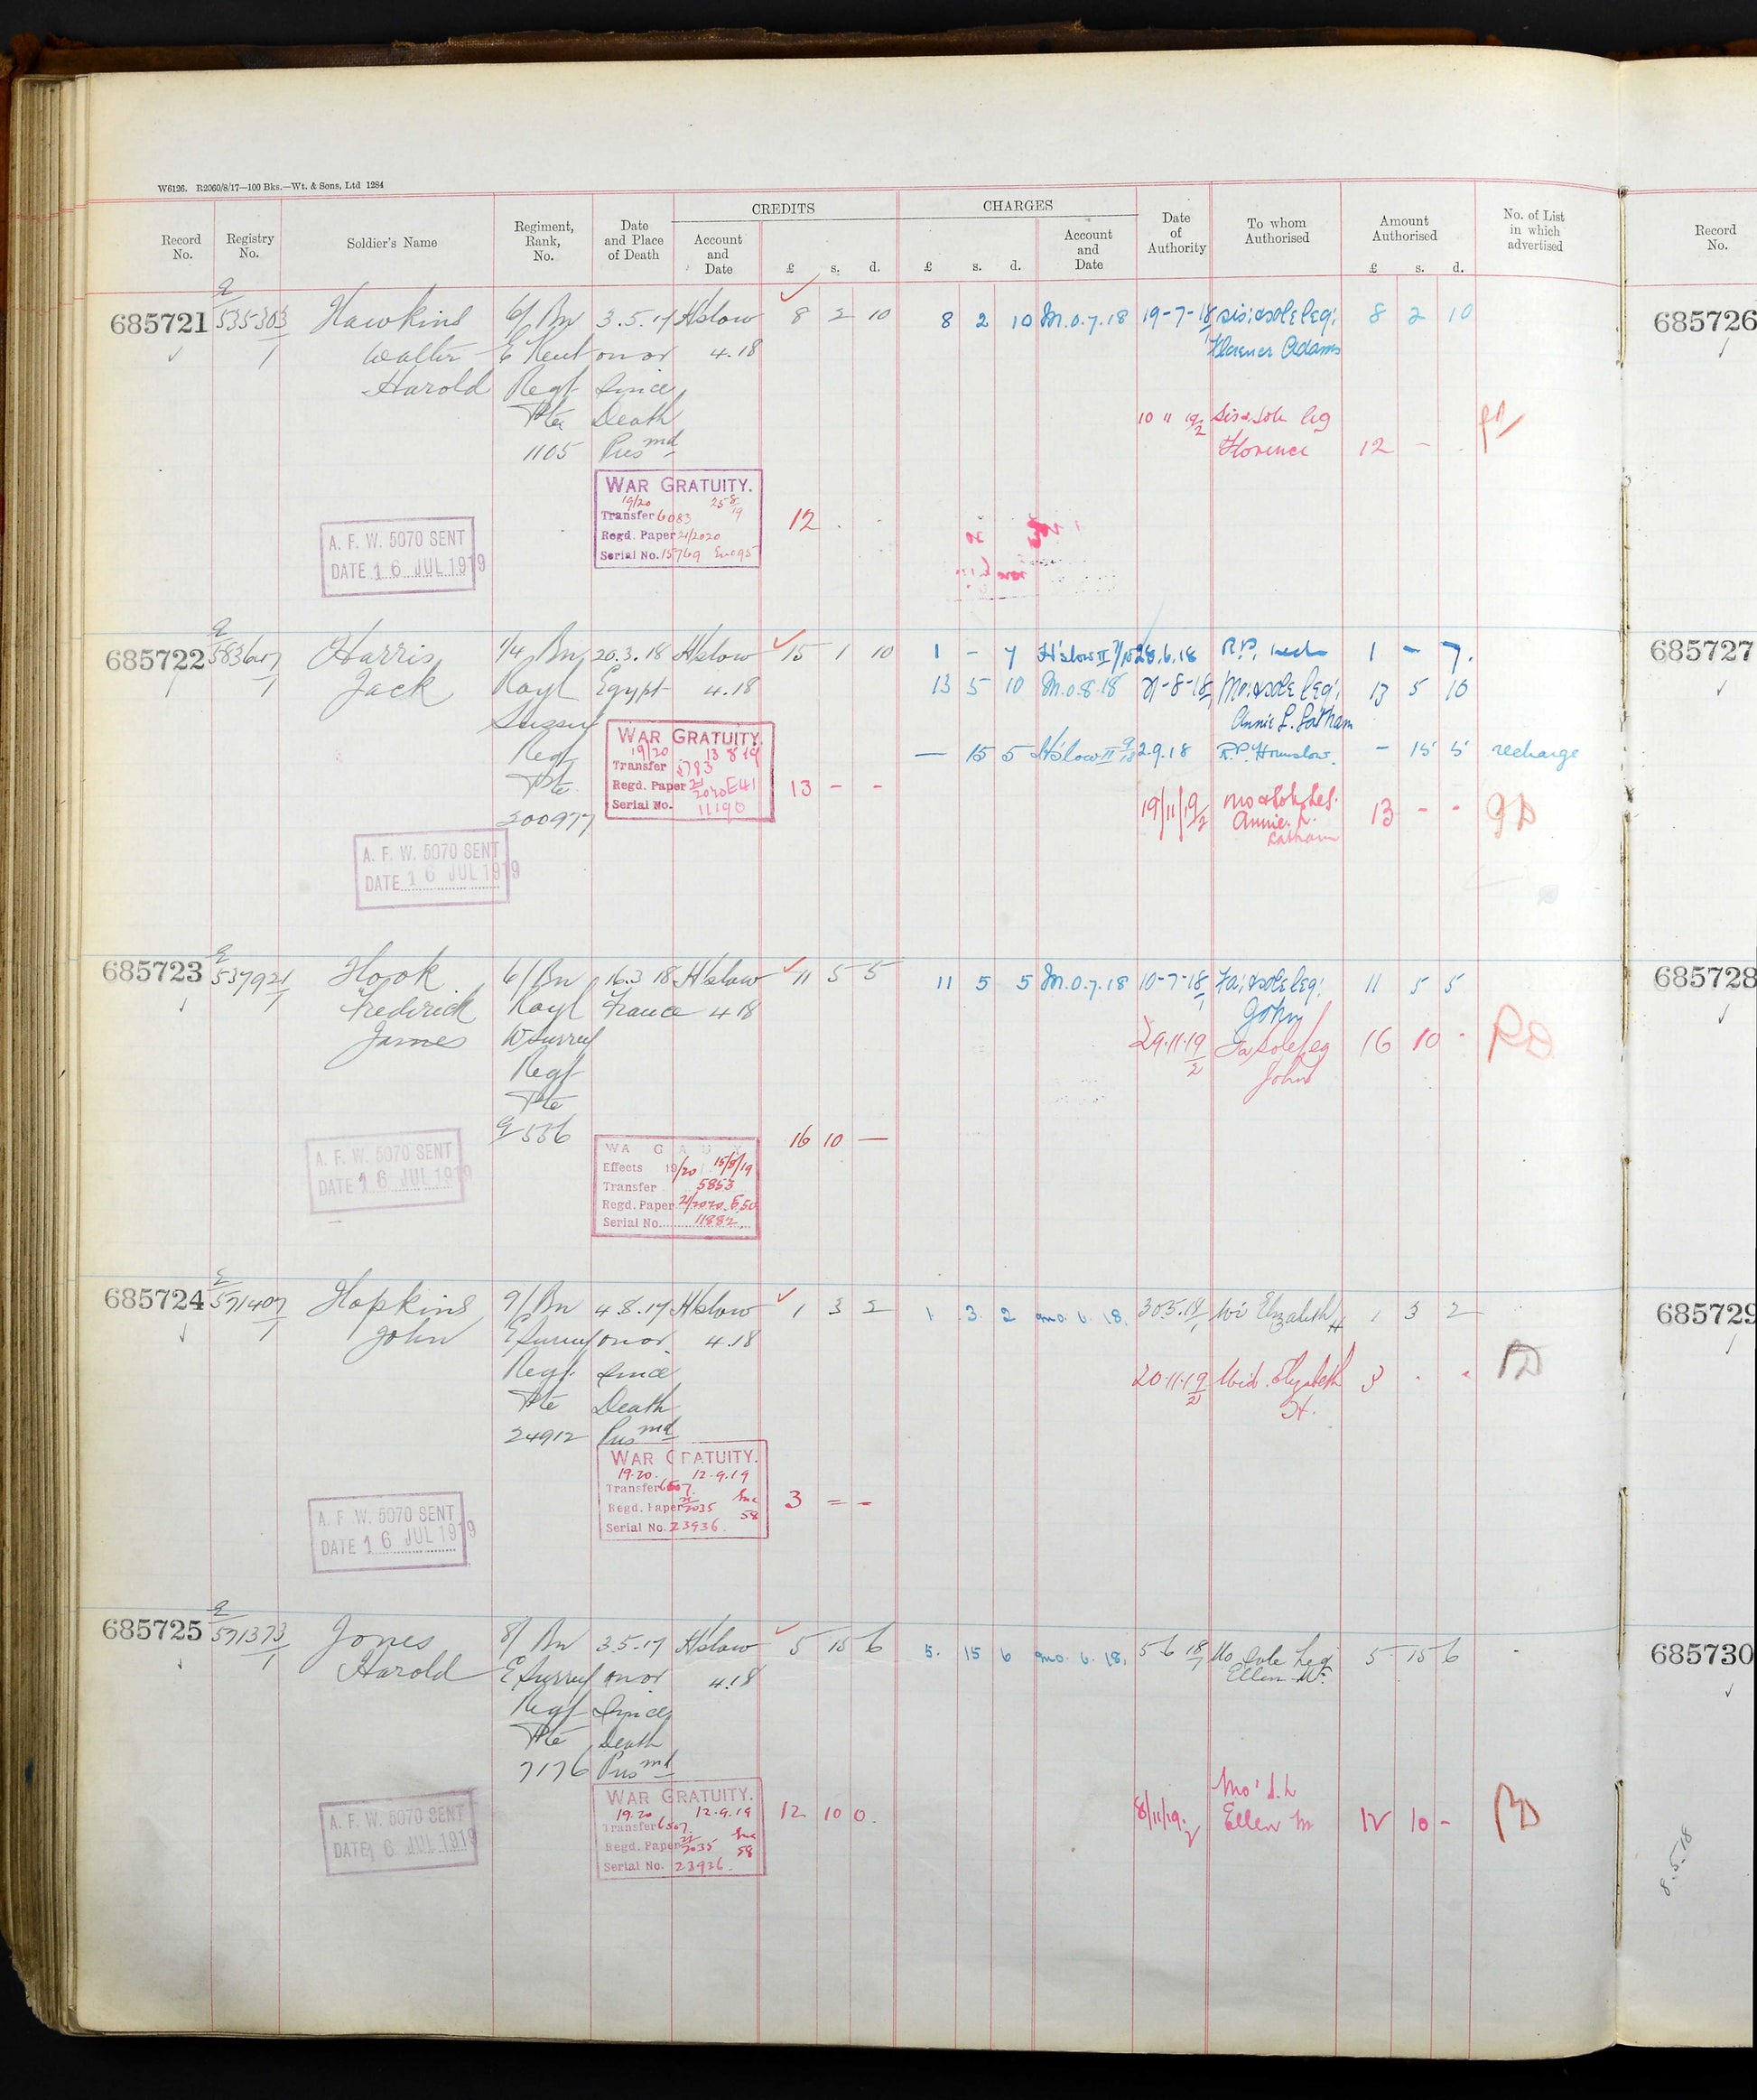 W6126. R2060/8/17—100 Bks.—Wt. & Sons, Ltd 1284
Record No.
Registry No.
Soldier's Name
Regiment, Rank, No.
Date and Place of Death
CREDITS
Account and Date
£ s. d.
CHARGES
£ s. d.
Account and Date
Date of Authority
To whom Authorised
Amount Authorised
£ s. d.
No. of List in which advertised
Record No.
685721 535303 Hawkins 6/ Bn 3.5.17 H'slow 8 2 10 8 2 10 M.O.7.18 19-7-18 sis: & sole leg: 8 2 10
1 Walter E Kent on or 4.18 Florence Adams
Harold Regt since
Pte Death 10 11 19 Sis & Sole leg
1105 Presmd Florence 12 -
WAR GRATUITY.
19/20 25 8/19
Transfer 6083 12
Regd. Paper 21/2020
Serial No. 15769 Enc 95
A. F. W. 5070 SENT
DATE 16 JUL 1919
685722 Harris 1/4 Bn 20.3.18 H'slow 15 1 10 1 - 7 H'slow II 28.6.18 R.P. 1 - 7.
1 Jack Royl Egypt 4.18 13 5 10 M.O.8.18 21-8-18 Mo: & sole leg: 13 5 10
Sussex Annie L. Latham
Regt — 15 5 H'slow II 2.9.18 R.P. Hounslow. - 15 5 recharge
Pte
200977
WAR GRATUITY.
19/20 13 8 19
Transfer 5783
Regd. Paper 21/2020 E41 13 - -
Serial No. 11190
19/11/19 Mo & Sole Leg. 13 - -
Annie L.
Latham
A. F. W. 5070 SENT
DATE 16 JUL 1919
685723 537921 Hook 6/ Bn 16.3.18 H'slow 11 5 5 11 5 5 M.O.7.18 10-7-18 Fa: & sole leg: 11 5 5
1 Frederick Royl France 4.18 John
James W Surrey 29.11.19 Fa sole leg 16 10 -
Regt John
Pte
16 10 —
Effects 19/20 15/8/19
Transfer 5853
Regd. Paper 21/2020 E.50
Serial No. 11882
A. F. W. 5070 SENT
DATE 16 JUL 1919
685724 571407 Hopkins 9/ Bn 4.8.17 H'slow 1 3 2 1. 3. 2 mo. 6. 18. 30.5.18 Wid Elizabeth H 1 3 2
1 John E Surrey on or 4.18
Regt since 20.11.19 Wid. Elizabeth 3
Pte Death H.
24912 Presmd
WAR GRATUITY.
19.20. 12.9.19
Transfer 6507 3 - -
Regd. Paper 21/2035 Enc 58
Serial No. 23936
A. F. W. 5070 SENT
DATE 16 JUL 1919
685725 571373 Jones 8/ Bn 3.5.17 H'slow 5 15 6 5. 15 6 mo. 6. 18. 5 6 18 Mo Sole Leg 5 15 6
1 Harold E Surrey on or 4.18 Ellen M.
Regt Since
Pte Death
7176 Presmd
WAR GRATUITY.
19.20 12.9.19 12 10 0.
Transfer 6507.
Regd. Paper 21/2035 Enc 58
Serial No. 23936.
Mo' S.L
8/11/19 Ellen M 12 10 -
A. F. W. 5070 SENT
DATE 16 JUL 1919
685726
685727
685728
685729
685730
8.5.18